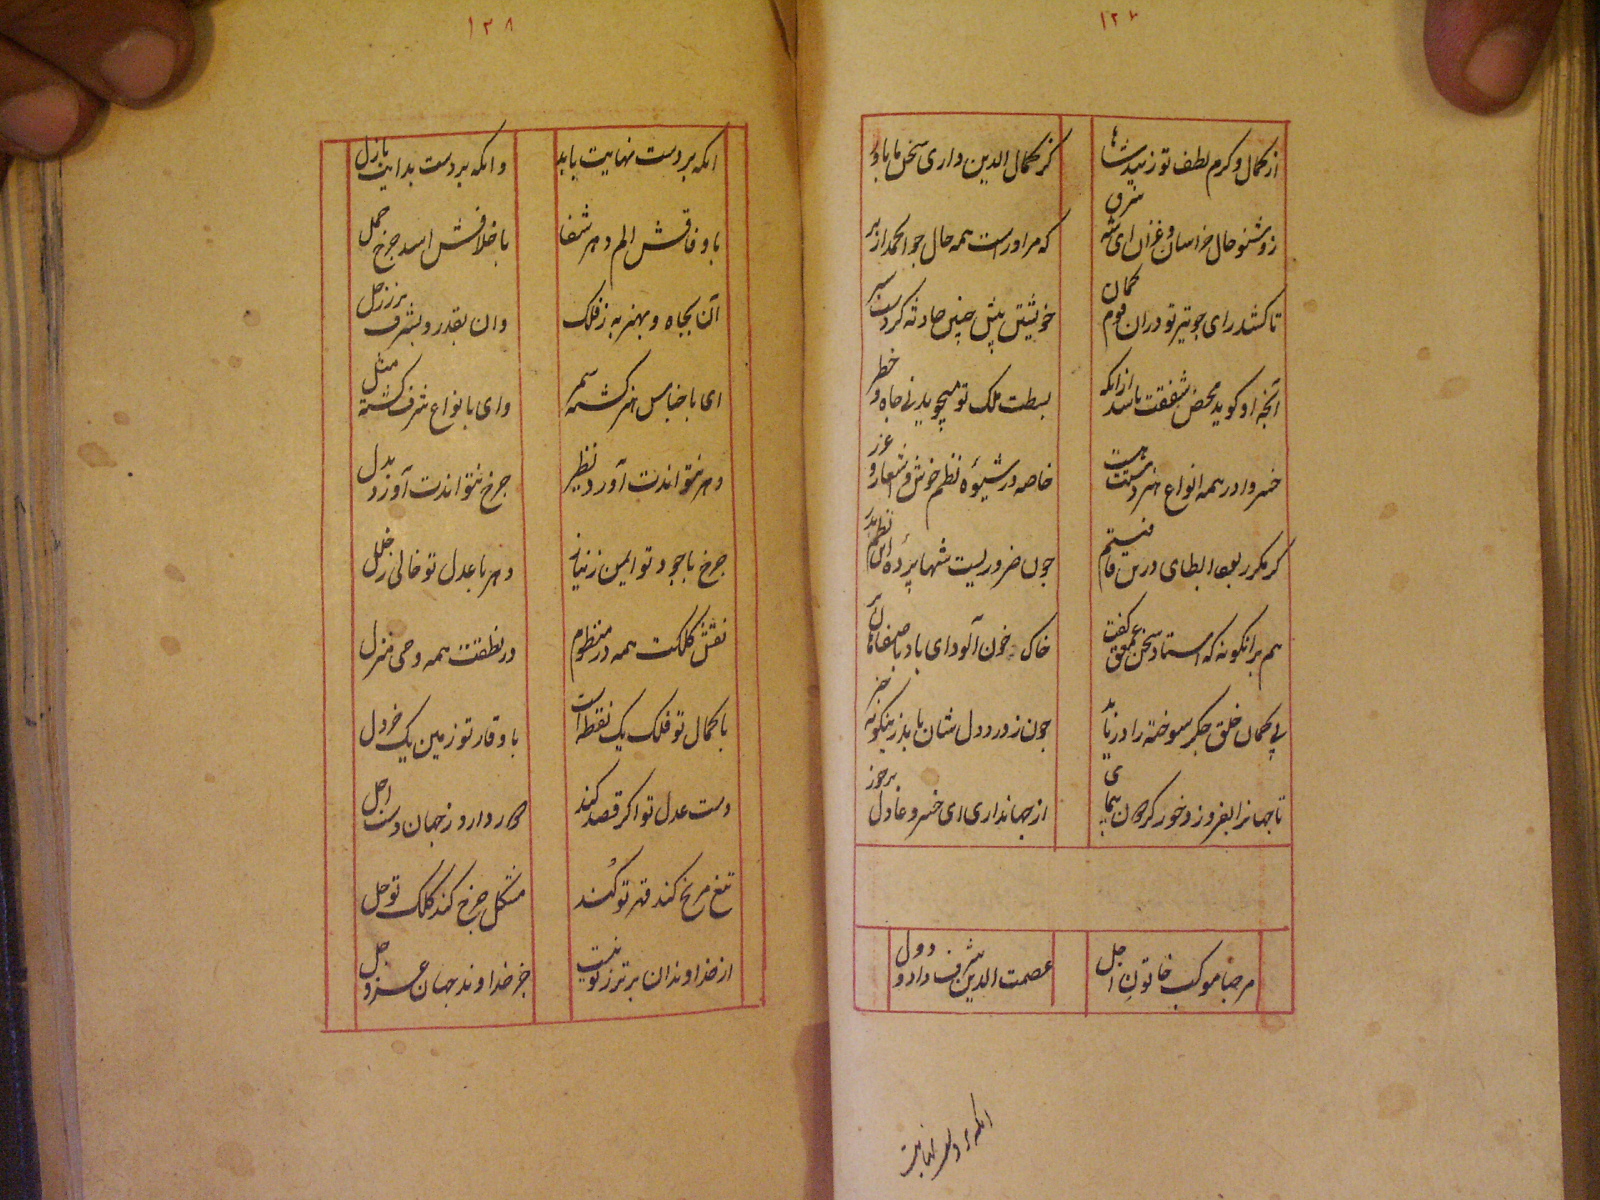 ۱۲۷
از کمال و کرم لطف تو زیبد شاها
کز کمال الدین داری سخن ما باور
زو شنو حال خراسان و غزان ای شه شرق
که مر او راست همه حال چو الحمد از بر
تا کشد رای چو تیر تو دران قوم کمان
خویشتن پیش چنین حادثه کردست سپر
آنچه او کوید محض شفقت باشد ازانکه
بسطت ملک تو میجوید نی جاه و خطر
خسروا در همه انواع هنر دستت هست
خاصه در شیوهٔ نظم خوش و اشعار و غرر
کر مکرر بود ایطای درین قافیتم
چون ضروریست شها پردهٔ این نظم مدر
هم برانکونه که استاد سخن عمعق کفت
خاک خون آلود ای باد باصفاهان بر
بی کمان خلق جکر سوخته را دریابد
چون ز درد دل شان یابد زینکونه خبر
تا جهانرا بفروزد خور کردون پیمای
از جهانداری ای خسرو عادل برخور
مرحبا موکب خاتون اجل
عصمت الدین شرف داد و دول
انکه بر دست نهایت
۱۲۸
انکه بر دست نهایت یابد
و انکه بر دست بدایت بازل
با وفاقش الم دهر شفا
با خلافش اسد چرخ حمل
آن بجاه و بهنر به ز فلک
وان بقدر و بشرف برز زحل
ای باجناس هنر کشته سمر
وای بانواع شرف کشته مثل
دهر نتواندت آورد نظیر
چرخ نتواندت آورد بدل
چرخ با جود تو ایمن ز نیاز
دهر با عدل تو خالی ز خلل
نقش کلکت همه در منظوم
در نطقت همه وحی منزل
با کمال تو فلک یک نقطه است
با وقار تو زمین یک خردل
دست عدل تو اکر قصد کند
دارد از جهان دست اجل
تیغ مریخ کند قهر تو کند
مشکل چرخ کند کلک تو حل
از خداوندان برتر ز تو نیست
جز خداوند جهان عز و جل